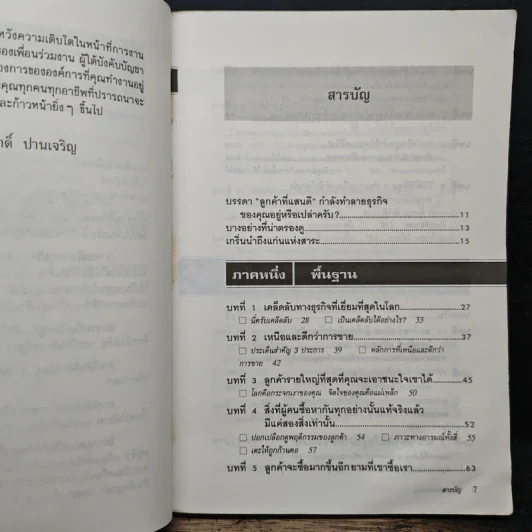 หวังความเติบโตในหน้าที่การงาน
องเพื่อนร่วมงาน ผู้ใต้บังคับบัญชา
องการขององค์การที่คุณทำงานอยู่
คุณทุกคนทุกอาชีพที่ปรารถนาจะ
ละก้าวหน้ายิ่ง ๆ ขึ้นไป
กดิ์ ปานเจริญ
สารบัญ
บรรดา "ลูกค้าที่แสนดี" กำลังทำลายธุรกิจ
ของคุณอยู่หรือเปล่าครับ? 11
บางอย่างที่น่าตรองดู 13
เกริ่นนำถึงแก่นแห่งสาระ 15
ภาคหนึ่ง พื้นฐาน
บทที่ 1 เคล็ดลับทางธุรกิจที่เยี่ยมที่สุดในโลก 27
□ นี่ครับเคล็ดลับ 28 □ เป็นเคล็ดลับได้อย่างไร? 33
บทที่ 2 เหนือและดีกว่าการขาย 37
□ ประเด็นสำคัญ 3 ประการ 39 □ หลักการที่เหนือและดีกว่า
การขาย 42
บทที่ 3 ลูกค้ารายใหญ่ที่สุดที่คุณจะเอาชนะใจเขาได้ 45
□ โลกคือกระจกเงาของคุณ จิตใจของคุณคือแม่เหล็ก 50
บทที่ 4 สิ่งที่ผู้คนซื้อหากันทุกอย่างนั้นแท้จริงแล้ว
มีแค่สองสิ่งเท่านั้น 52
□ ปอกเปลือกดูพฤติกรรมของลูกค้า 54 □ ภาวะทางอารมณ์ทั้งสี่ 55
□ เตะให้ถูกก้านคอ 57
บทที่ 5 ลูกค้าจะซื้อมากขึ้นอีก ยามที่เขาซื้อเรา 63
สารบัญ 7